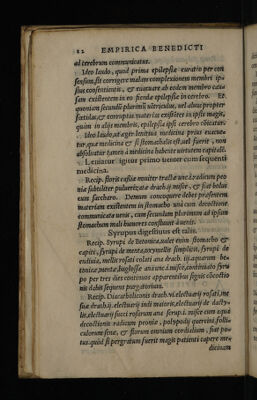 22 EMPIRICA BENEDICTI
al cerebrum communicatur.
Ideo laudo, quod prima epilepsiæ curatio per con
sensum, sit corrigere malam complexionem membri ip-
sius consentientis, & euacuare ab eodem membro cau-
sam existentem in eo fiendæ epilepsiæ in cerebro. Et
omnium secundum plurimum uitriculus, uel aluus propter
situm materias existere in ipsis magis,
quàm in alijs membris, epilepsiã ipsi cerebro
Ideo laudo, ut æger lenitiua medicina prius euacue-
tur, quæ medicina & si stomachalis est, uel fuerit, non
absoluatur tamen à medicina habente uirtutem capitale.
Leniatur igitur primo uenter cum sequenti
medicina.
Recip. florũ cassiæ nouiter tractæ unc. i. radicum peo
niæ subtiliter puluerizatæ drach. ij misce, & fiat bolus
cum saccharo. Demum concoquere debet præsentem
materiam existentem in stomacho uná cum decoctione
communicata uenit, cum secundum plurimum ad ipsum
stomachum mali humores constituant
Syrupus digestiuus est talis.
Recip. Syrupi de Betonica, ualet enim stomacho &
capiti, syrupi de menta, oxymellis simplicis, syrupi de
endiuia, mellis rosati colati ana drach. iij. aquarum be-
tonicæ, mentæ, buglossæ ana unc. i. misce, continuato syru
po per tres dies continuos apparentibus signis
nis dabis sequens purgatorium.
Recip. Diacatholiconis drach. vi. electuarij rosati, me
suæ drach. iij. electuarij indi maioris, electuarij de dacty-
lis, electuarij succi rosarum ana scrup. i. misce cum aqua
decoctionis radicum peoniæ, polypodij quercini, folli-
culorum senæ, & florum omnium cordialium, fiat po-
tus. quòd si pergratum fuerit magis patienti capere me-
dicinam